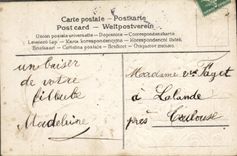 Carte postale - Postkarte
Post card - Weltpostverein
Union postale universelle - Dopisnice - Correspondenzkarte
Levelező-Lap - Karta korespondencyjna - Korespondenčni listek
Brefkort - Cartolina postale - Briefkaart - Tarjeta postal
un baiser
de votre
filleule
Madeleine
Madame Vve Payet
à Lalande
près Toulouse